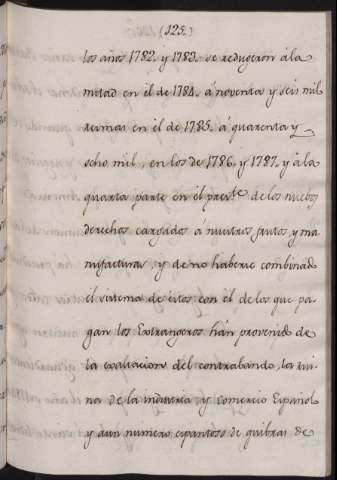 (125.)
los años 1782. y 1783. se redugeron à la
mitad en él de 1784. á noventa y seis mil
resmas en él de 1785. á quarenta y
ocho mil, en los de 1786. y 1787. y à la
quarta parte en él preste. de los nuebos
derechos cargados a nuestros frutos, y ma
nifacturas, y de no haberse combinado
él sistema de éstos con él de los que pa
gan los Extrangeros hán provenido de
la exaltacion del contrabando, la rui
na de la industria, y comercio Español
y aun numero espantoso de quibras de